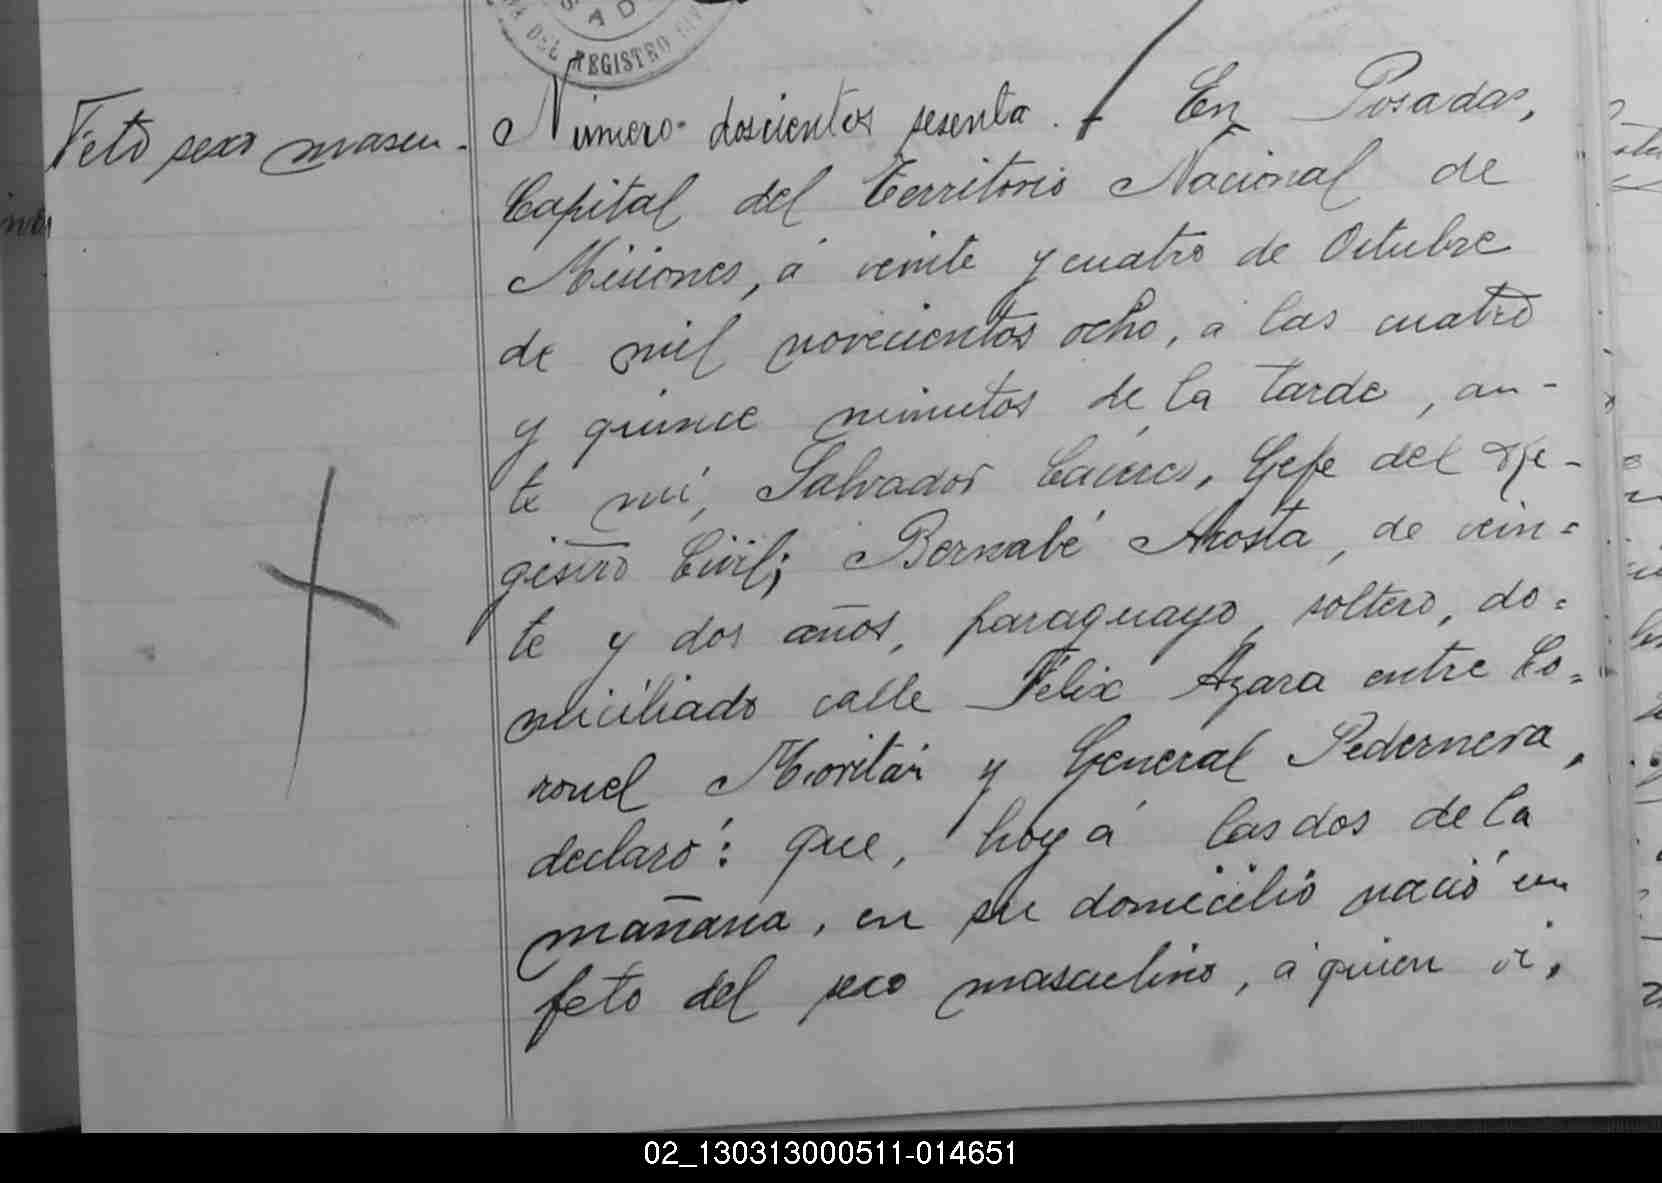 SAD
DEL REGISTRO
Feto sexo mascu-
Número doscientos sesenta. En Posadas,
Capital del Territorio Nacional de
Misiones, á veinte y cuatro de Octubre
de mil novecientos ocho, á las cuatro
y quince minutos de la tarde, an-
te mí, Salvador Cáceres, Gefe del Re-
gistro Civil; Bernabé Acosta, de vein-
te y dos años, paraguayo, soltero, do-
miciliado calle Félix Azara entre Co-
ronel Moritán y General Pedernera,
declaró: que, hoy á las dos de la
mañana, en su domicilio nació un
feto del sexo masculino, á quien vi,
02_130313000511-014651